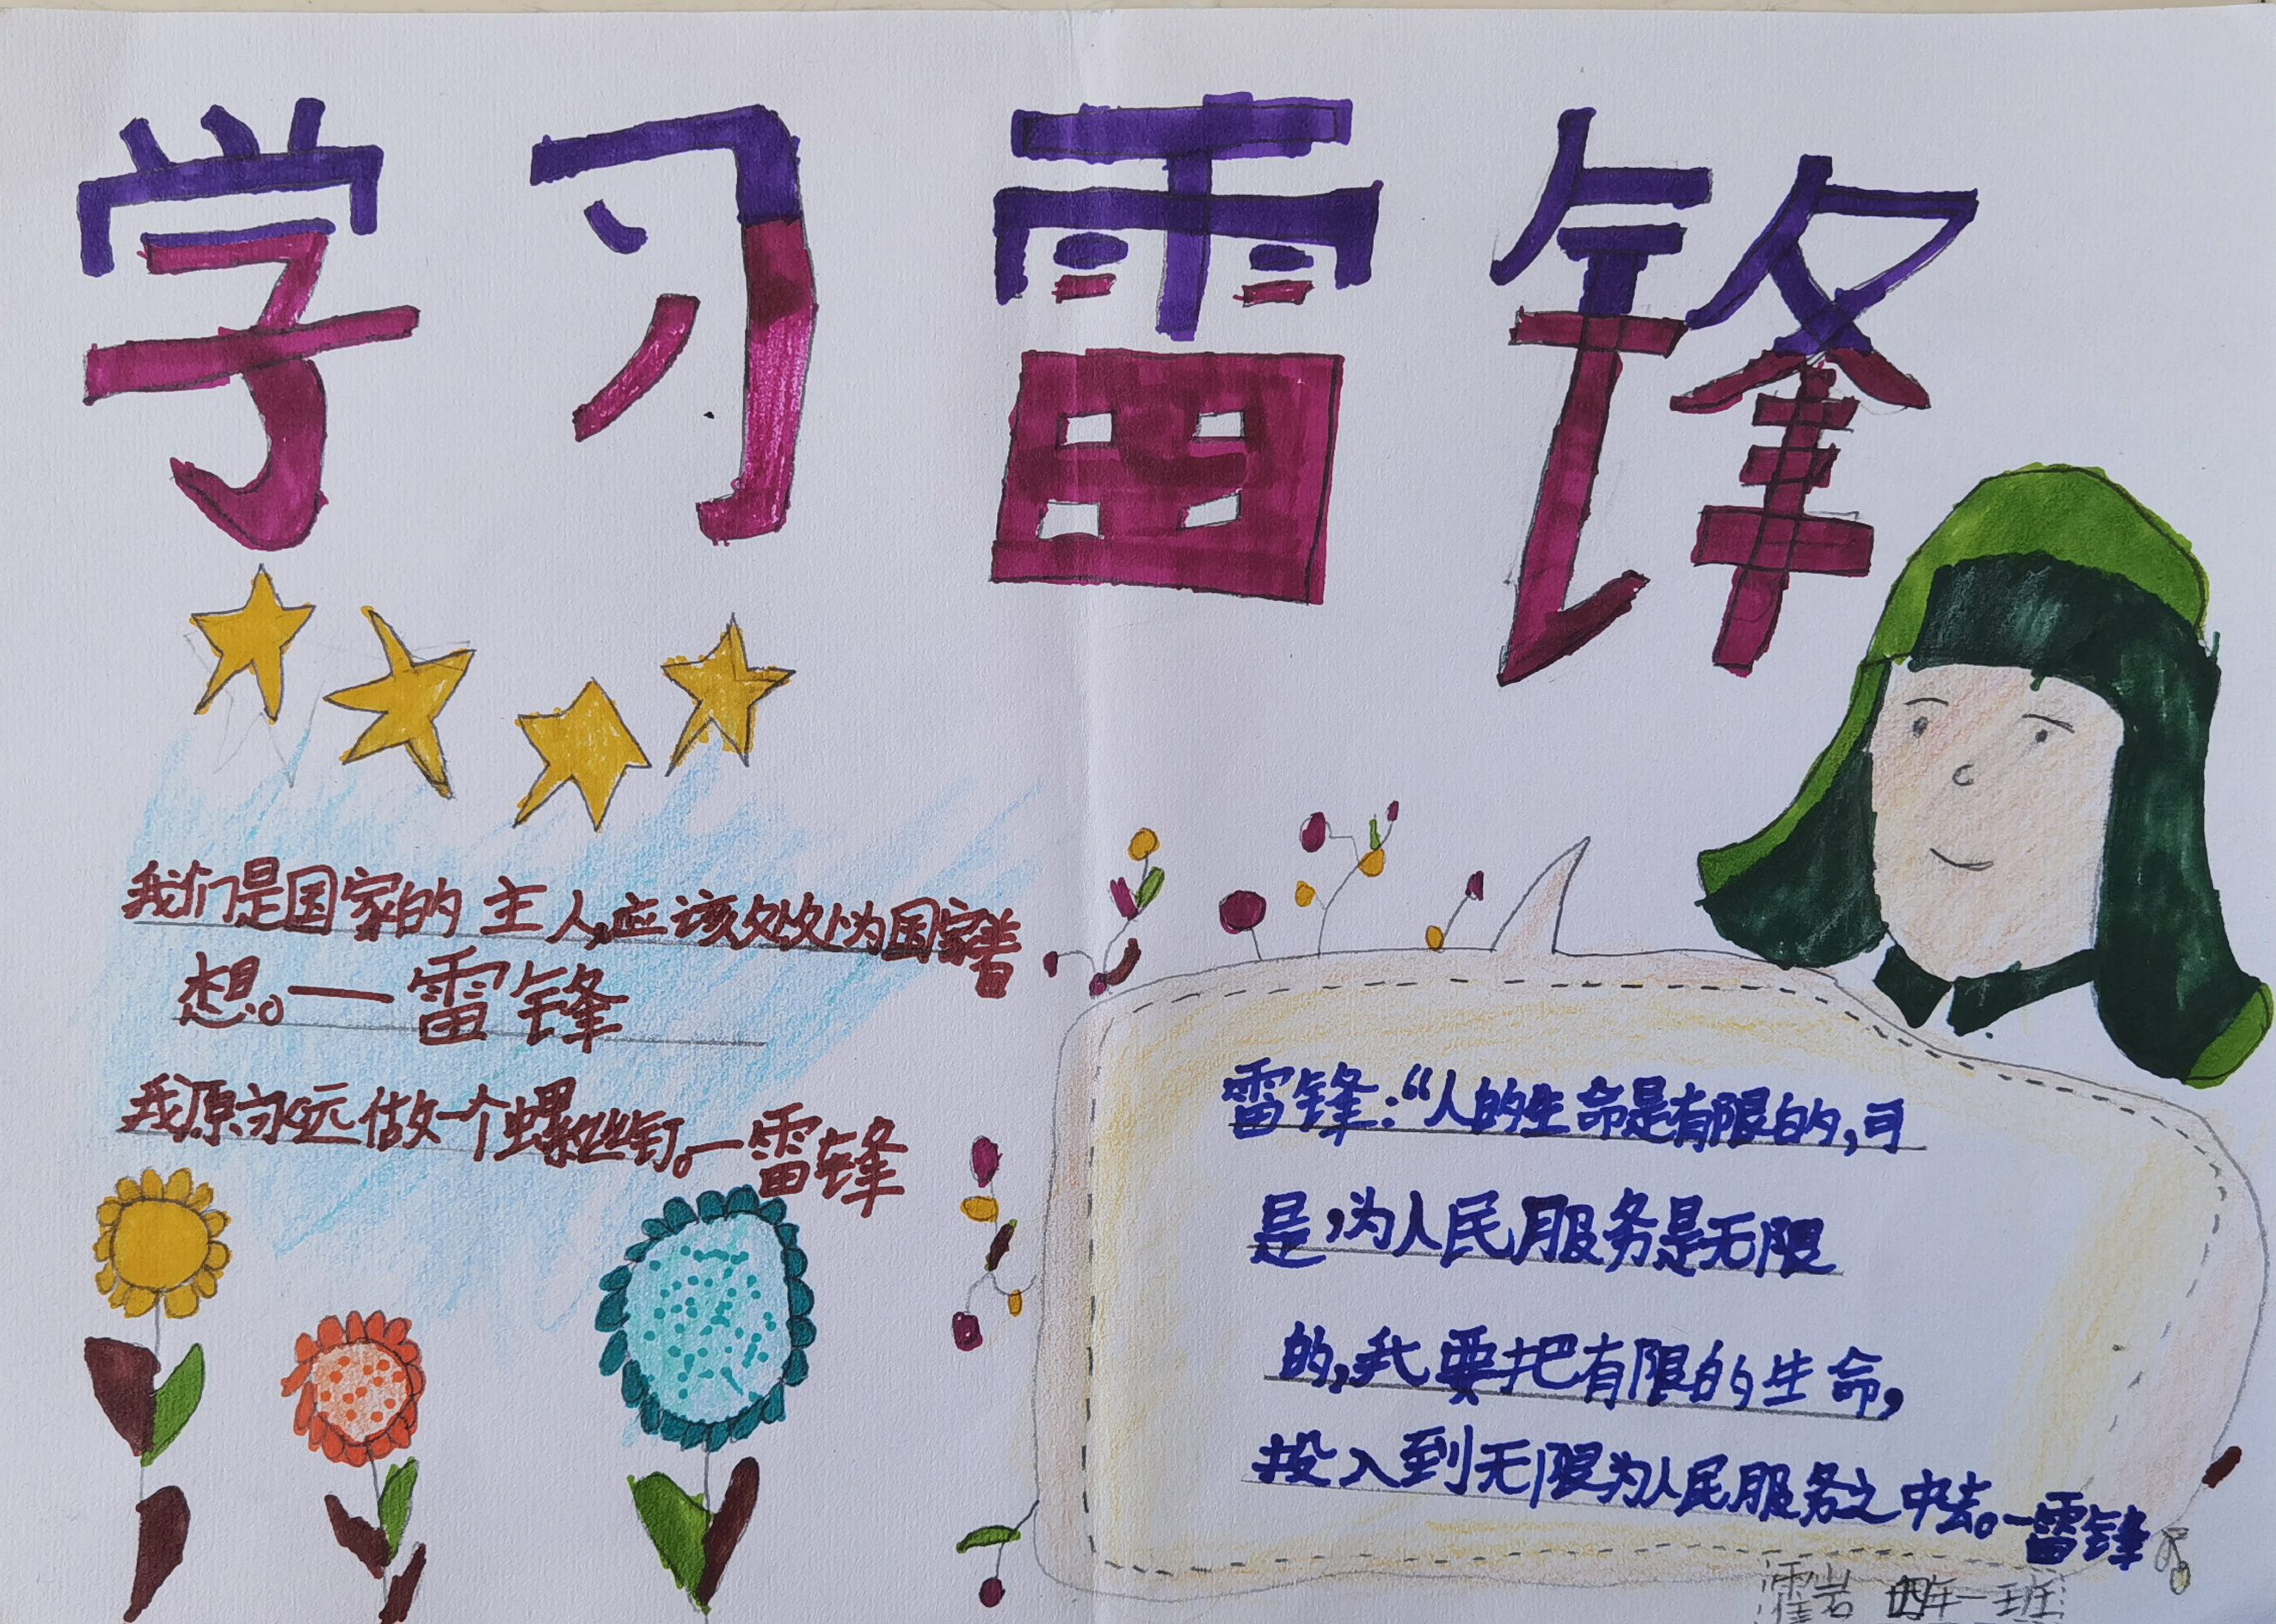 学习雷锋
我们是国家的主人,应该处处为国家着
想。一雷锋
我原永远做一个螺丝钉。一雷锋
雷锋:“人的生命是有限的,可
是,为人民服务是无限
的,我要把有限的生命,
投入到无限为人民服务之中去。一雷锋
霍岩 四年一班